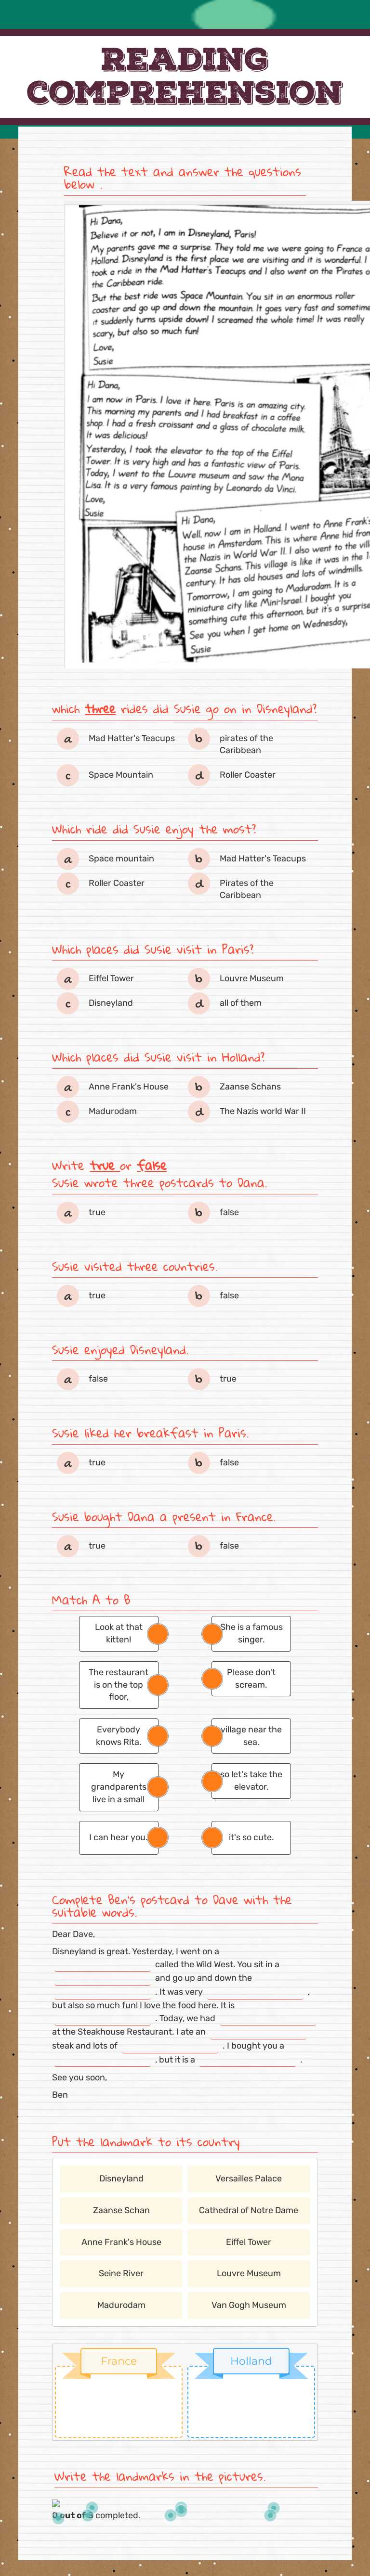 READING
COMPREHENSION
Read the text and answer the questions
below .
Hi Dana,
Believe it or not, I am in Disneyland, Paris!
My parents gave me a surprise They told me we were going to France a
Holland Disneyland is the first place we are visiting and it is wonderful. I
took a ride in the Mad Hatter's Teacups and I also went on the Pirates o
the Caribbean ride.
But the best ride was Space Mountain. You sit in an enormous roller
coaster and go up and down the mountain. It goes very fast and sometime
it suddenly turns upside down! I screamed the whole time! It was really
scary, but also so much fun!
Love,
Susie
Hi Dana,
I am now in Paris. I love it here. Paris is an amazing city.
This morning my parents and I had breakfast in a coffee
shop. I had a fresh croissant and a glass of chocolate milk.
It was delicious!
Yesterday, I took the elevator to the top of the Eiffel
Tower. It is very high and has a fantastic view of Paris.
Today, I went to the Louvre museum and saw the Mona
Lisa. It is a very famous painting by Leonardo da Vinci.
Love,
Susie
Hi Dana,
Well, now I am in Holland. I went to Anne Frank's
house in Amsterdam. This is where Anne hid from
the Nazis in World War II. I also went to the vill
Zaanse Schans. This village is like it was in the 1
century. It has old houses and lots of windmills.
Tomorrow, I am going to Madurodam. It is a
miniature city like Mini-Israel. I bought you
something cute this afternoon, but it's a surprise
See you when I get home on Wednesday,
Susie
which three rides did Susie go on in Disneyland?
a Mad Hatter's Teacups b pirates of the
Caribbean
c Space Mountain d Roller Coaster
Which ride did Susie enjoy the most?
a Space mountain b Mad Hatter's Teacups
c Roller Coaster d Pirates of the
Caribbean
Which places did Susie visit in Paris?
a Eiffel Tower b Louvre Museum
c Disneyland d all of them
Which places did Susie visit in Holland?
a Anne Frank's House b Zaanse Schans
c Madurodam d The Nazis world War II
Write true or false
Susie wrote three postcards to Dana.
a true b false
Susie visited three countries.
a true b false
Susie enjoyed Disneyland.
a false b true
Susie liked her breakfast in Paris.
a true b false
Susie bought Dana a present in France.
a true b false
Match A to B
Look at that
kitten!
She is a famous
singer.
The restaurant
is on the top
floor,
Please don't
scream.
Everybody
knows Rita.
village near the
sea.
My
grandparents
live in a small
so let's take the
elevator.
I can hear you.
it's so cute.
Complete Ben's postcard to Dave with the
suitable words.
Dear Dave,
Disneyland is great. Yesterday, I went on a
called the Wild West. You sit in a
and go up and down the
. It was very ,
but also so much fun! I love the food here. It is
. Today, we had
at the Steakhouse Restaurant. I ate an
steak and lots of . I bought you a
, but it is a .
See you soon,
Ben
Put the landmark to its country
Disneyland Versailles Palace
Zaanse Schan Cathedral of Notre Dame
Anne Frank's House Eiffel Tower
Seine River Louvre Museum
Madurodam Van Gogh Museum
France Holland
Write the landmarks in the pictures.
out of completed.